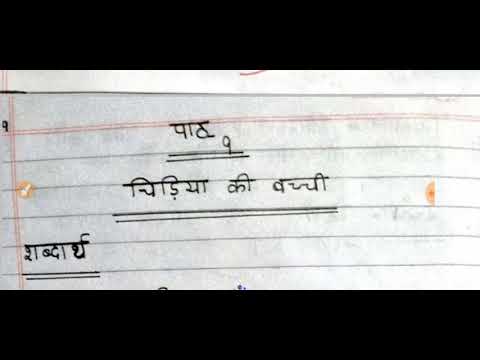 १
पाठ
१
चिड़िया की बच्ची
शब्दार्थ